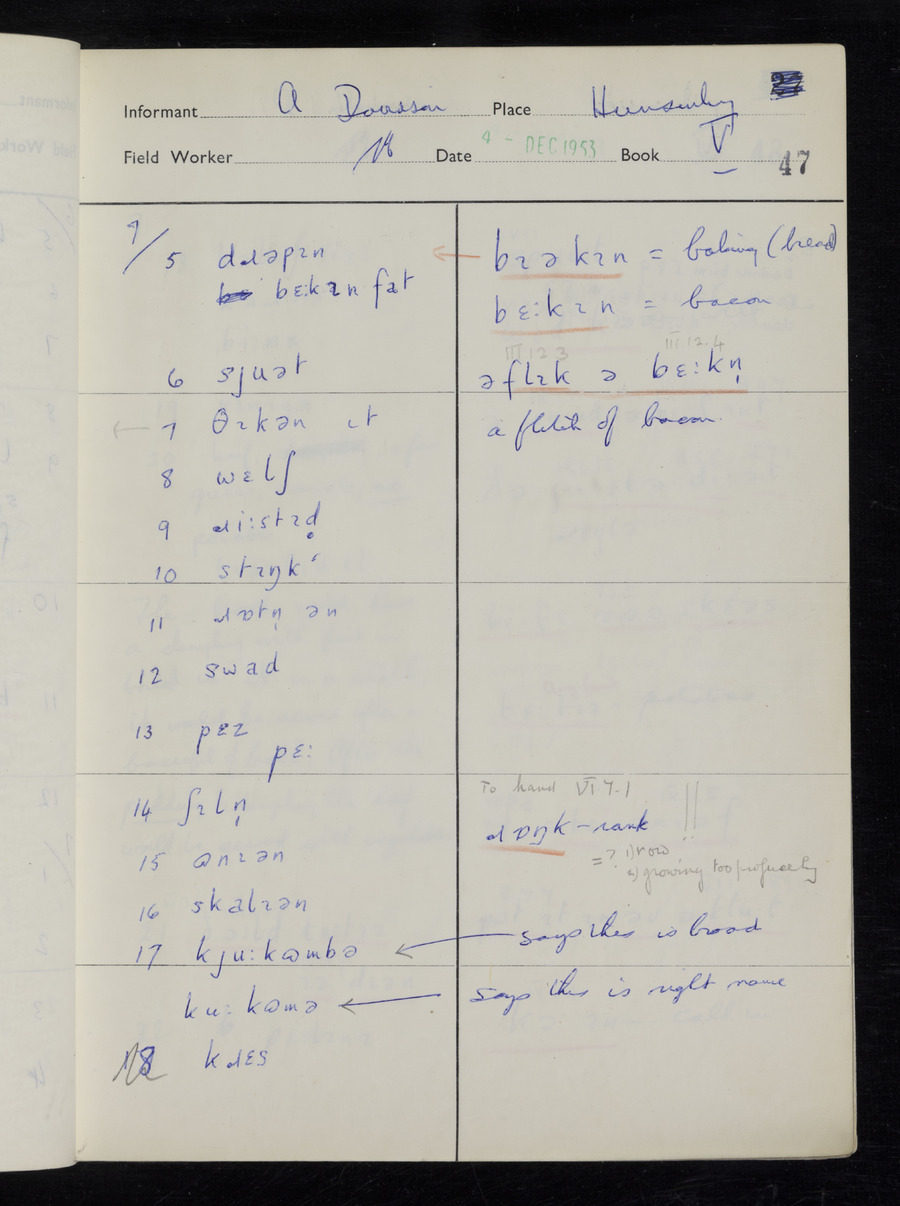 Informant A Place
Field Worker Date 4 - DEC 1953 Book V 47
7/5 dɹəpɪn
bɛ:kɪn fat
bɪəkɪn = baking (bread)
bɛ:kɪn = bacon
III.12.3 III.12.4
6 sjuət
ə flɪk ə bɛ:kn̩
7 θɪkən ɪt
a flitch of bacon
8 wɛlʃ
9 ɹi:stɪd̥
10 stɪŋkʻ
11 ɹɒtn̩ ən
12 swad
13 pɛz
pɛ:
14 ʃɪln̩
To hand VI 7.1
ɹɒŋk - rank !!
15 ɷnɪən
= ? 1) row
2) growing too profusely
16 skalɪən
17 kju:kɷmbə
says this is broad
ku:kɷmə
says this is right name
18 kɹɛs